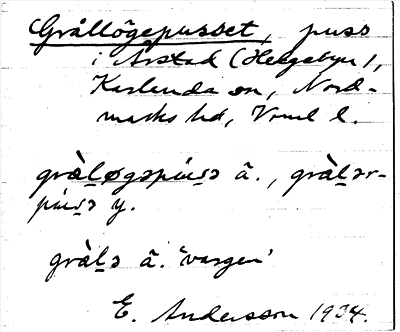 Grållögepusset, puss
i Årstad (Helgebyn),
Karlanda sn, Nord-
marks hd, Vrml l.
gràl̲øgəpúsə ä., gràl̲ər-
púsə y.
gràl̲ə ä. 'vargen'
E. Andersson 1934.